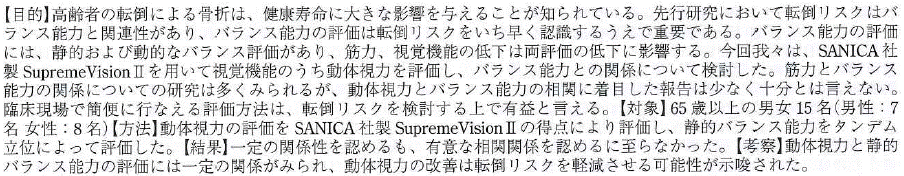 【目的】高齢者の転倒による骨折は、健康寿命に大きな影響を与えることが知られている。先行研究において転倒リスクはバ
ランス能力と関連性があり、バランス能力の評価は転倒リスクをいち早く認識するうえで重要である。バランス能力の評価
には、静的および動的なバランス評価があり、筋力、視覚機能の低下は両評価の低下に影響する。今回我々は、SANICA社
製SupremeVisionⅡを用いて視覚機能のうち動体視力を評価し、バランス能力との関係について検討した。筋力とバランス
能力の関係についての研究は多くみられるが、動体視力とバランス能力の相関に着目した報告は少なく十分とは言えない。
臨床現場で簡便に行なえる評価方法は、転倒リスクを検討する上で有益と言える。【対象】65歳以上の男女15名(男性：7
名 女性：8名)【方法】動体視力の評価をSANICA社製SupremeVisionⅡの得点により評価し、静的バランス能力をタンデム
立位によって評価した。【結果】一定の関係性を認めるも、有意な相関関係を認めるに至らなかった。【考察】動体視力と静的
バランス能力の評価には一定の関係がみられ、動体視力の改善は転倒リスクを軽減させる可能性が示唆された。